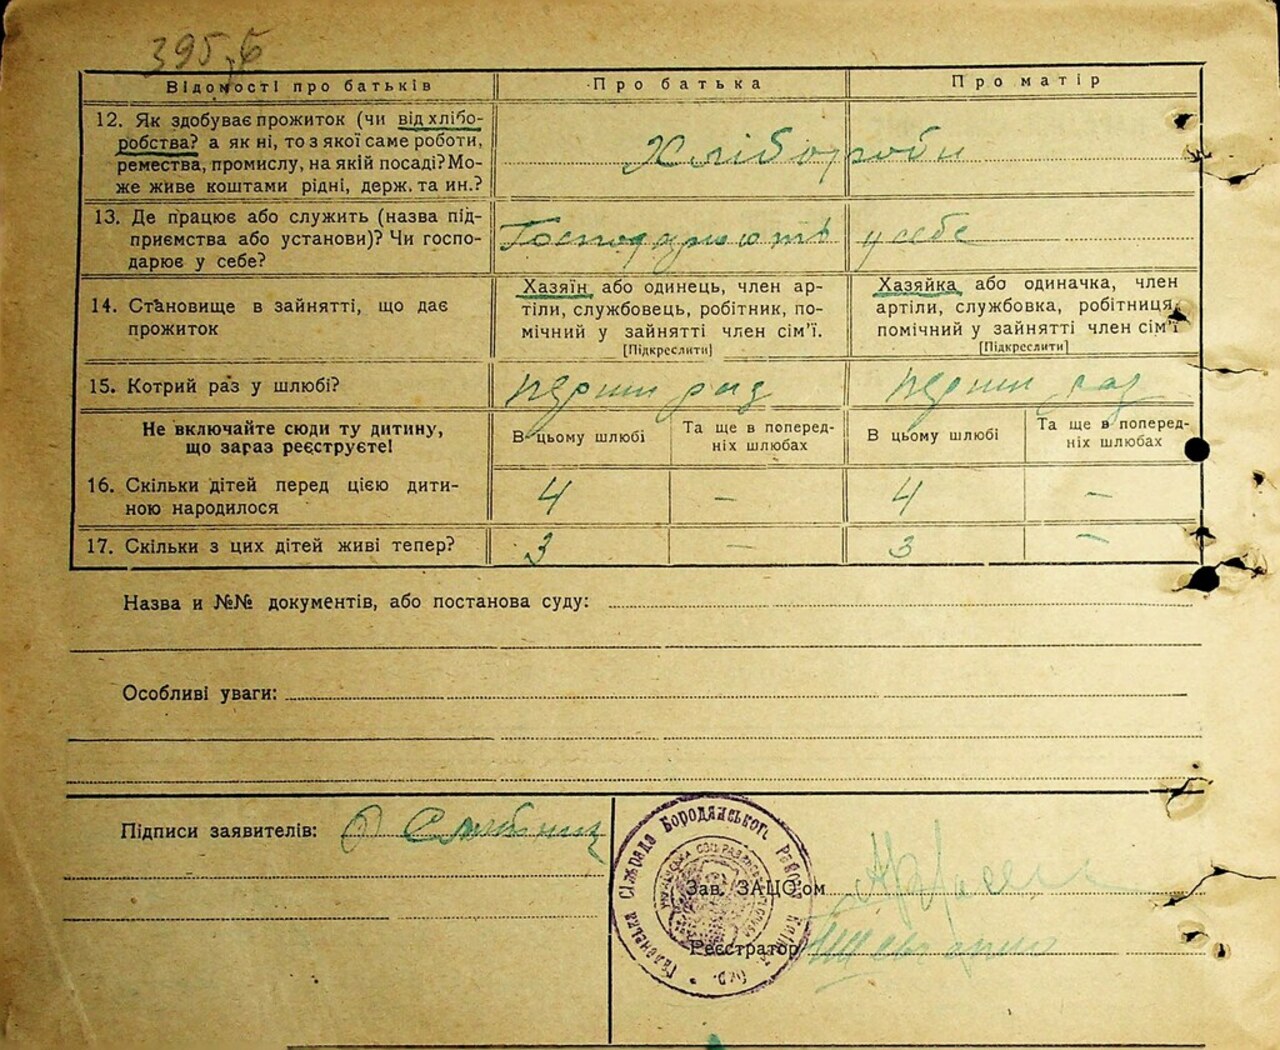 395,б
Відомості про батьків
Про батька
Про матір
12. Як здобуває прожиток (чи від хлібо-
робства? а як ні, то з якої саме роботи,
ремества, промислу, на якій посаді? Мо-
же живе коштами рідні, держ. та ин.?
Хлібороби
13. Де працює або служить (назва під-
приємства або установи)? Чи госпо-
дарює у себе?
Господарюють у себе
14. Становище в зайнятті, що дає
прожиток
Хазяїн або одинець, член ар-
тіли, службовець, робітник, по-
мічний у зайнятті член сім'ї.
[Підкреслити]
Хазяйка або одиначка, член
артіли, службовка, робітниця,
помічний у зайнятті член сім'ї
[Підкреслити]
15. Котрий раз у шлюбі?
перши раз
перши раз
Не включайте сюди ту дитину,
що зараз реєструєте!
В цьому шлюбі
Та ще в поперед-
ніх шлюбах
В цьому шлюбі
Та ще в поперед-
ніх шлюбах
16. Скільки дітей перед цією дити-
ною народилося
4 – 4 –
17. Скільки з цих дітей живі тепер?
3 – 3 –
Назва и №№ документів, або постанова суду:
Особливі уваги:
Підписи заявителів:
Сільрада Бородянського Району
Зав. ЗАЦС'ом
Реєстратор